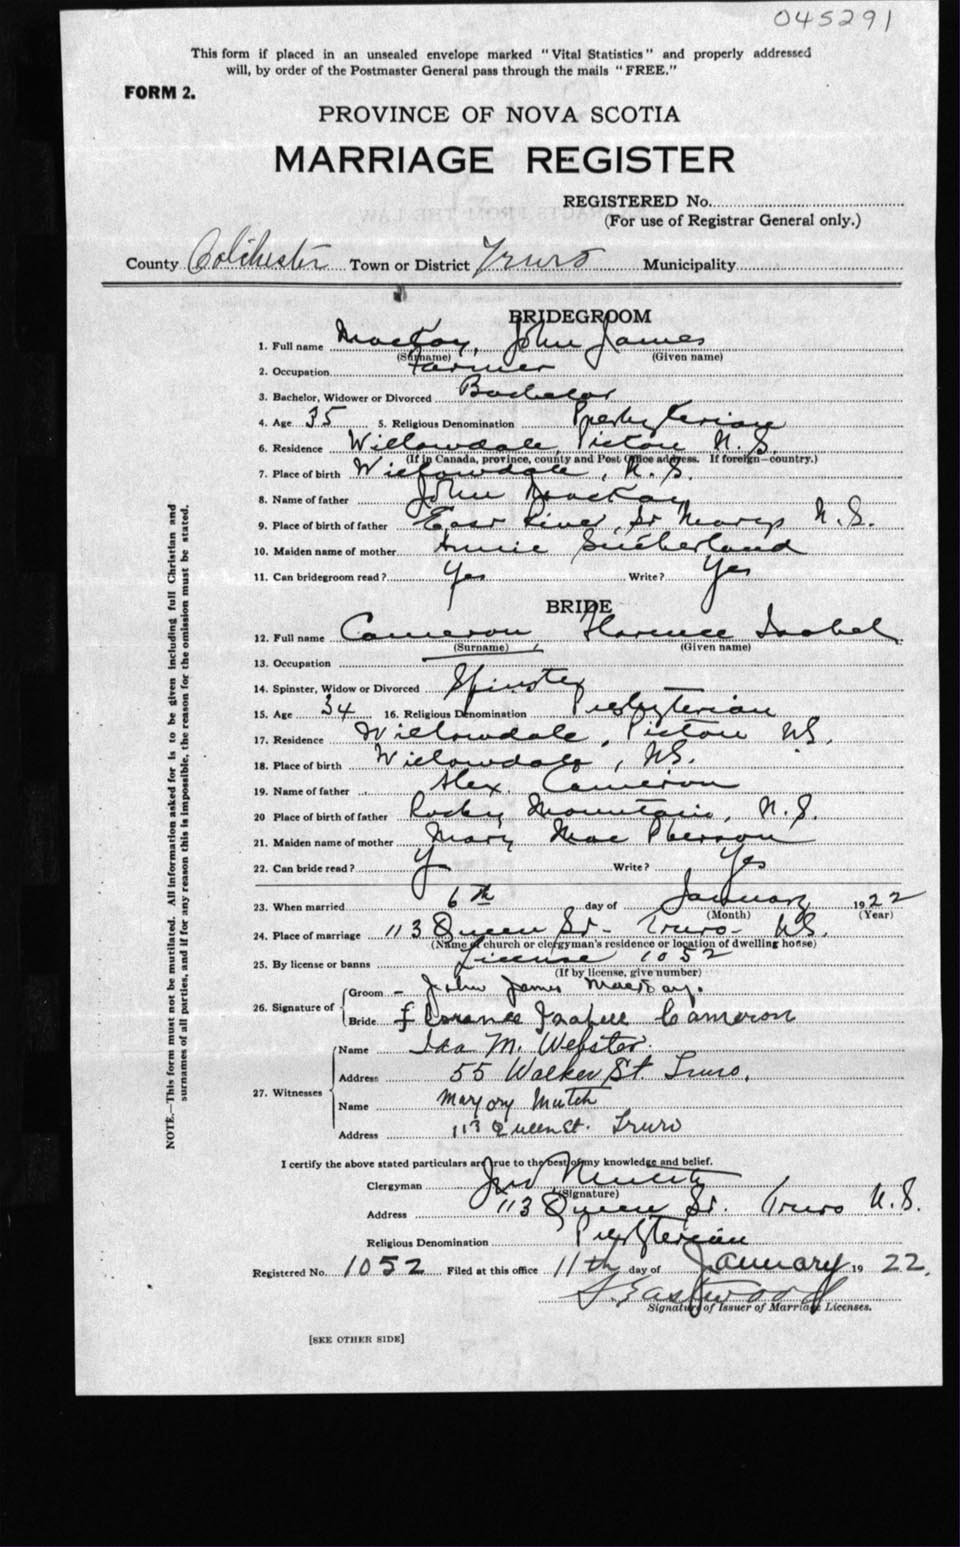 045291
This form if placed in an unsealed envelope marked "Vital Statistics" and properly addressed
will, by order of the Postmaster General pass through the mails "FREE."
FORM 2.
PROVINCE OF NOVA SCOTIA
MARRIAGE REGISTER
REGISTERED No.
(For use of Registrar General only.)
County Colchester Town or District Truro Municipality
BRIDEGROOM
1. Full name MacKay, John James
(Surname) (Given name)
2. Occupation Farmer
3. Bachelor, Widower or Divorced Bachelor
4. Age 35 5. Religious Denomination Presbyterian
6. Residence Willowdale, Pictou N.S.
(If in Canada, province, county and Post Office address. If foreign—country.)
7. Place of birth Willowdale, N.S.
8. Name of father John MacKay
9. Place of birth of father East River, St Marys N.S.
10. Maiden name of mother Annie Sutherland
11. Can bridegroom read? Yes Write? Yes
BRIDE
12. Full name Cameron Florence Isabel
(Surname) (Given name)
13. Occupation
14. Spinster, Widow or Divorced Spinster
15. Age 34 16. Religious Denomination Presbyterian
17. Residence Willowdale, Pictou NS.
18. Place of birth Willowdale, NS.
19. Name of father Alex. Cameron
20 Place of birth of father Rocky Mountain, N.S.
21. Maiden name of mother Mary MacPherson
22. Can bride read? Y Write? Yes
23. When married 6th day of January 1922
(Month) (Year)
24. Place of marriage 113 Queen St- Truro- NS.
(Name of church or clergyman's residence or location of dwelling house)
25. By license or banns License 1052
(If by license, give number)
26. Signature of Groom – John James MacKay.
Bride Florence Isabell Cameron
27. Witnesses Name Ida M. Webster.
Address 55 Walker St. Truro.
Name Marjory Mutch
Address 113 Queen St. Truro
I certify the above stated particulars are true to the best of my knowledge and belief.
Clergyman Mutch
(Signature)
Address 113 Queen St. Truro N.S.
Religious Denomination Presbyterian
Registered No. 1052 Filed at this office 11th day of January 1922.
Eastwood
Signature of Issuer of Marriage Licenses.
[SEE OTHER SIDE]
NOTE.—This form must not be mutilated. All information asked for is to be given including full Christian and
surnames of all parties, and if for any reason this is impossible, the reason for the omission must be stated.